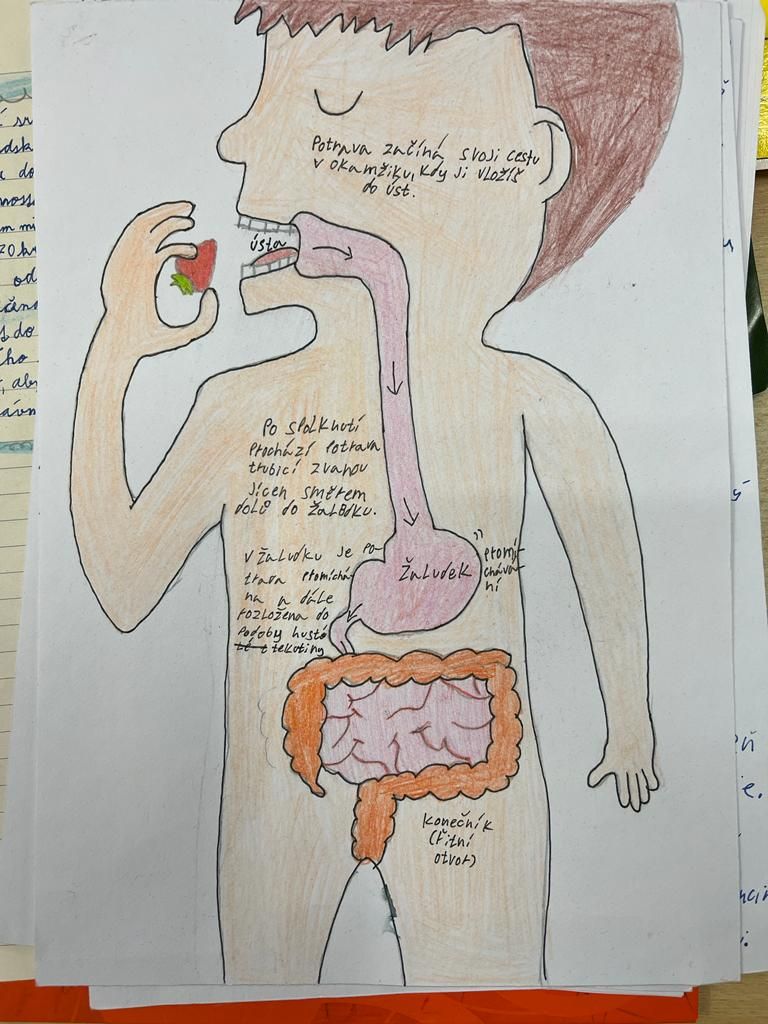 Potrava začíná svoji cestu
v okamžiku, kdy ji vložíš
do úst.
ústa
Po spolknutí
prochází potrava
trubicí zvanou
jícen směrem
dolů do žaludku.
V žaludku je po-
trava promíchá-
na a dále
rozložena do
podoby husté
tekutiny
Žaludek
promí-
chává-
ní
Konečník
(řitní
otvor)